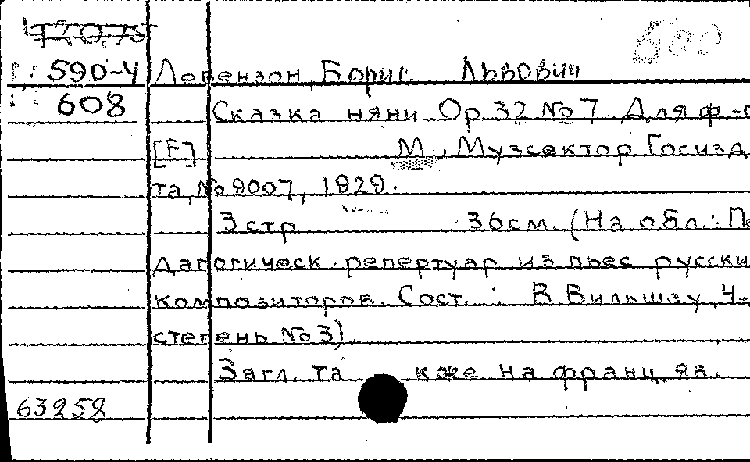 590-4 Левензон, Борис Львович
608 Сказка няни Op. 32 No 7. Для ф-
[F] М., Музсектор Госизд
та, No 9007, 1929.
3 стр 36 см. (На обл.: Пе
дагогическ. репертуар из пьес русски
композиторов. Сост.: В. Вильшау, 4-
степень No 3).
Загл. та кже на франц. яз.
63252